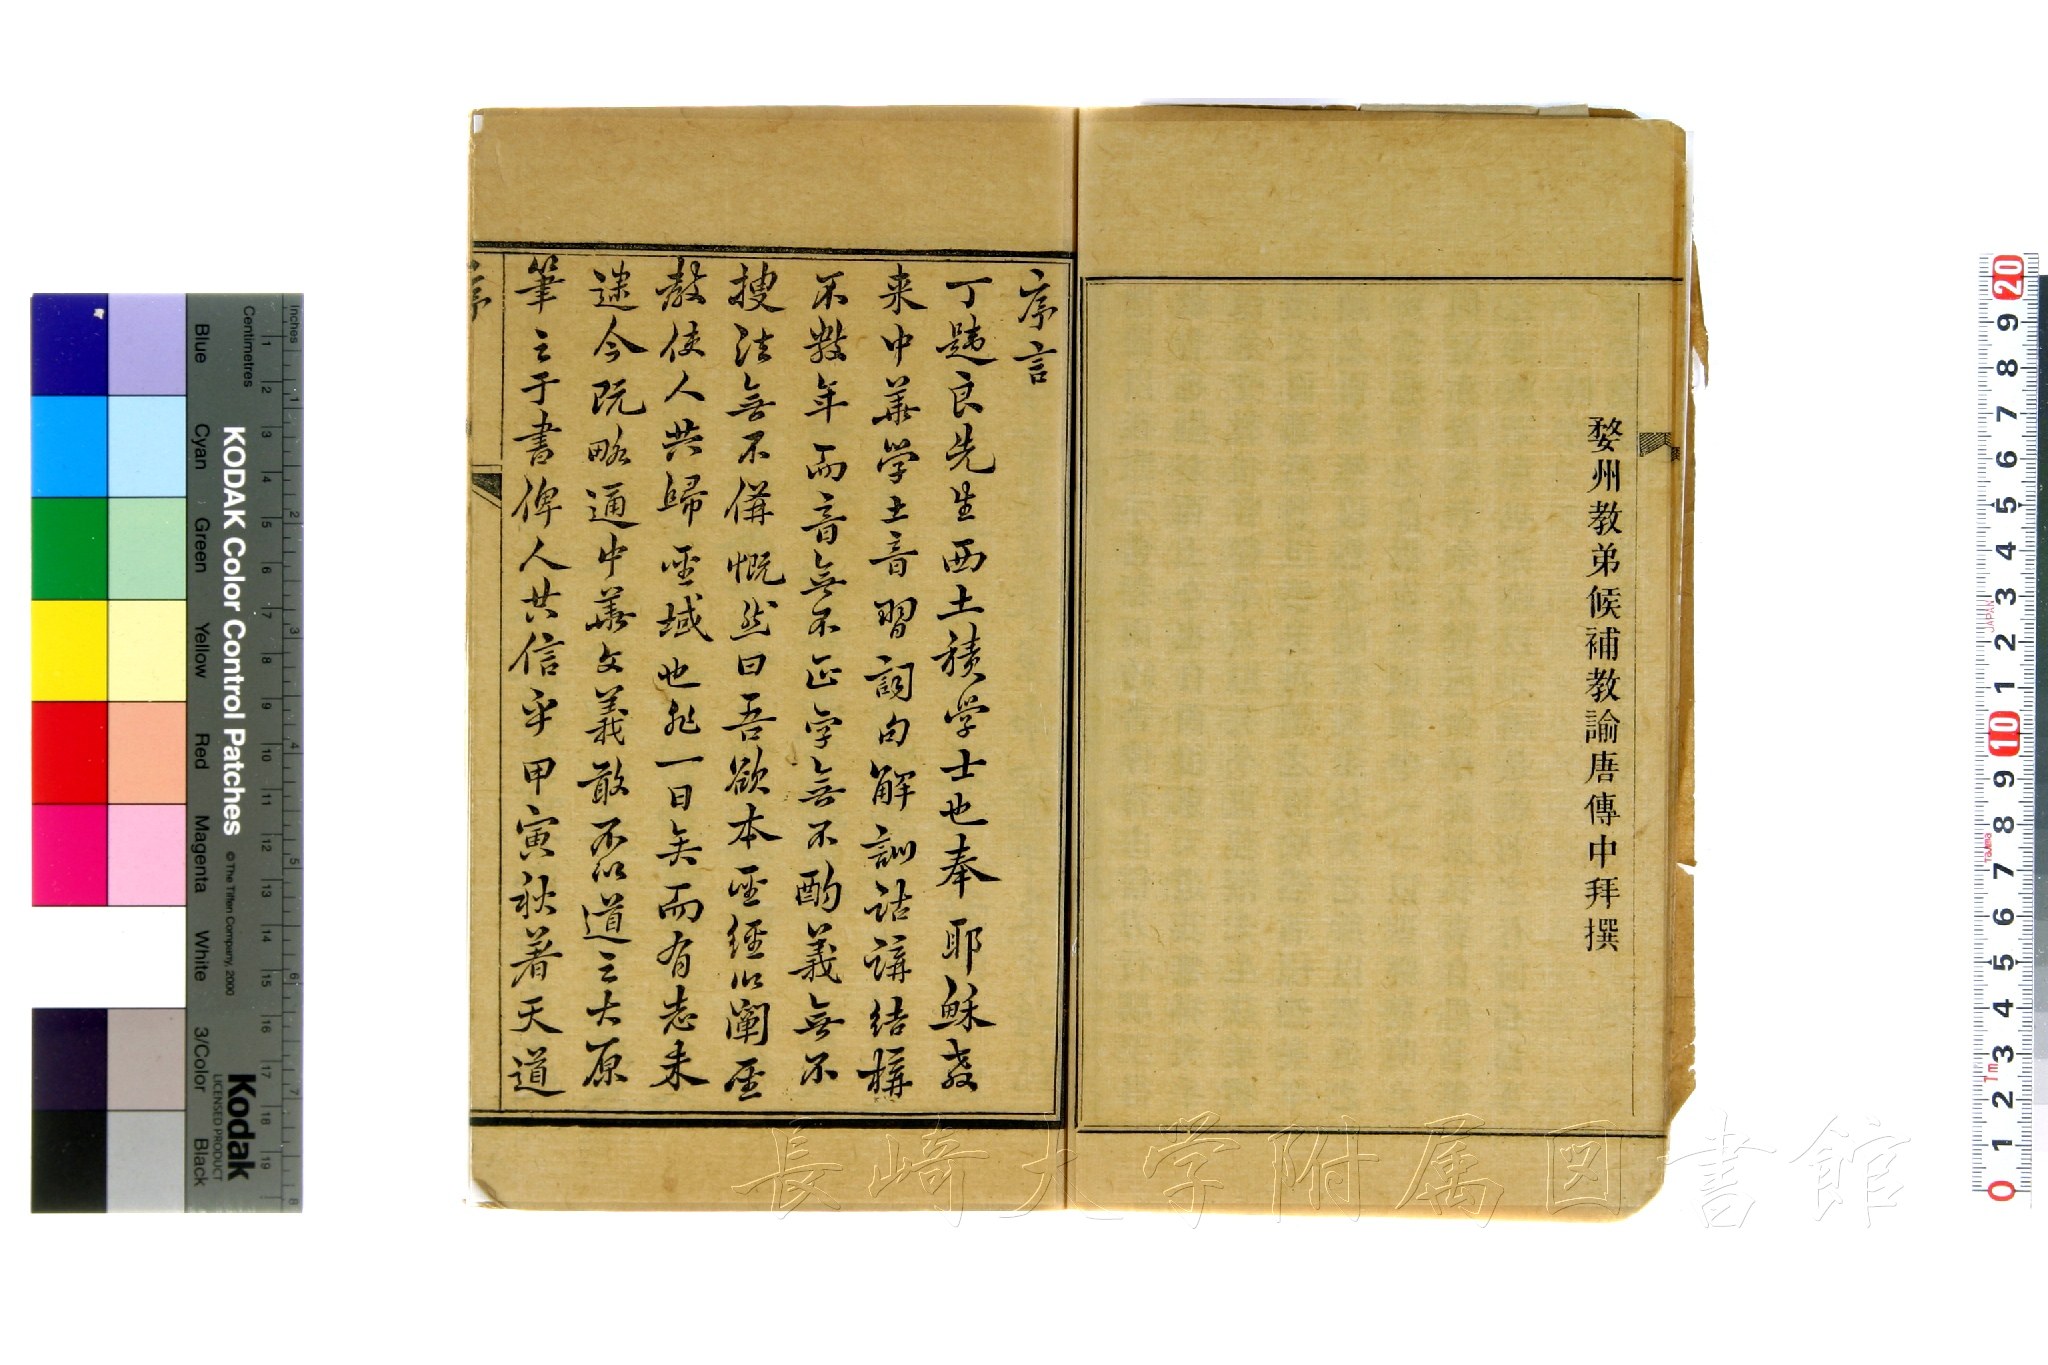 婺州教弟候補教諭唐傳中拜撰
序言
丁韙良先生西土積学士也奉耶穌教
来中華学土音習詞句解訓詁講結構
不數年而音無不正字無不酌義無不
搜法無不備慨然曰吾欲本聖經以闡聖
教使人共歸聖域也非一日矣而有志未
逮今既略通中華文義敢不以道之大原
筆之于書俾人共信乎甲寅秋著天道
序
長崎大学附属図書館
Inches
Centimetres
Blue
Cyan
Green
Yellow
Red
Magenta
White
3/Color
Black
KODAK Color Control Patches
© The Tiffen Company, 2000
Kodak
LICENSED PRODUCT
JAPAN
Tajima